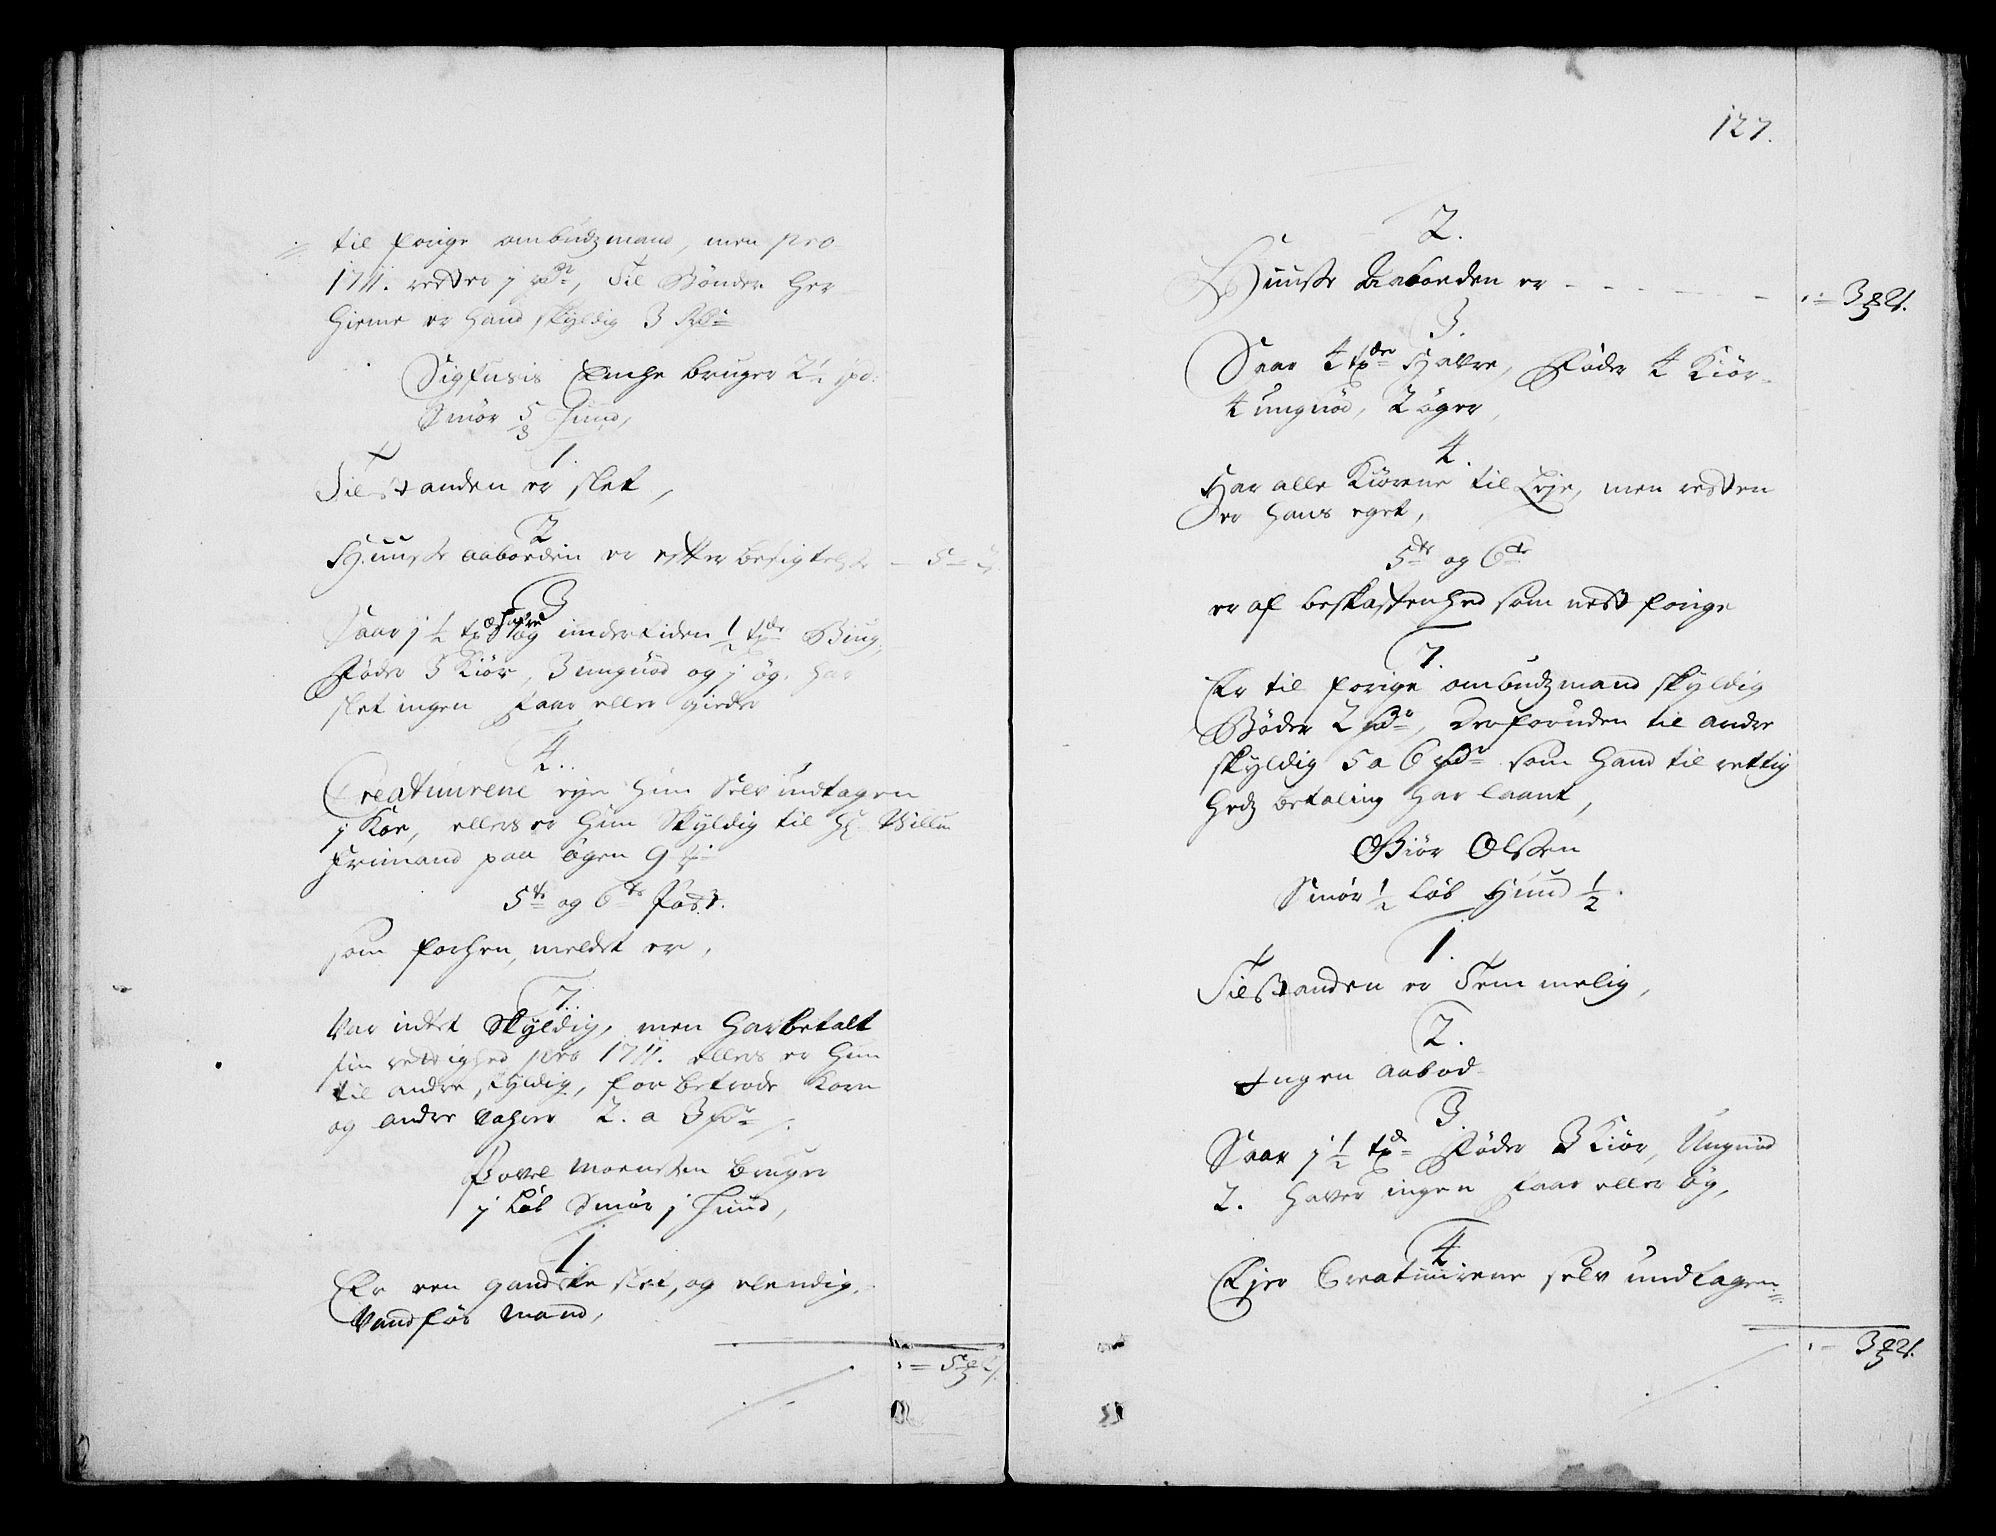 til forige ombudzmand, men pro
1711. rester j rdr, Til Bønder her
hieme er hand skyldig 3 Rdr
Sigfusis Enche bruger 2½ spd:
Smør 5/3 Huud,
1.
Tilstanden er slet,
2
Huusse aaboeden er efter besigtelse – 5 –
3
Saar j ½ tde hafre og undertiden ½ tde Biug,
føder 3 Kiør, 3 ungnød og j øg. har
slet ingen faar eller gieder
4.
Creatuurene eye hun selv undtagen
j Koe, ellers er hun skyldig til Hr. Willum
frimand paa øgen 9
5te og 6te Post.
som forhen, meldet er.
7.
Var intet skyldig, men har betalt
sin rettighed pro 1711. ellers er hun
til andre skyldig, for betrode Korn
og andre vahre 2. a 3 rdr
Povel Moensen bruger
j Løb Smør j Huud,
1.
Er een gandske slet, og elendig,
Vandfør mand,
127.
2.
Huusse Aaboeden er – – – – – 3
3.
Saar 4 tder Hafre, føder 4 Kiør
4 ungnød, 2 øger,
4.
Har alle Kiørene til Leje, men resten
er hans eget,
5te og 6te
er af beskaffenhed som nest forige
7.
Er til forige ombudzmand skyldig
Bøder 2 rdr, derforuden til andre
skyldig 5 a 6 rdr som hand til rettig
hedz betaling har laant,
Biør Olssen
Smør ½ Løb Huud ½.
1.
Tilstanden er Temmelig,
2.
Ingen aabod
3.
Saar j ½ tde føder 3 Kiør, Ungnød
2. haver ingen faar eller øg,
4
Ejer Creatuurene selv undtagen
3